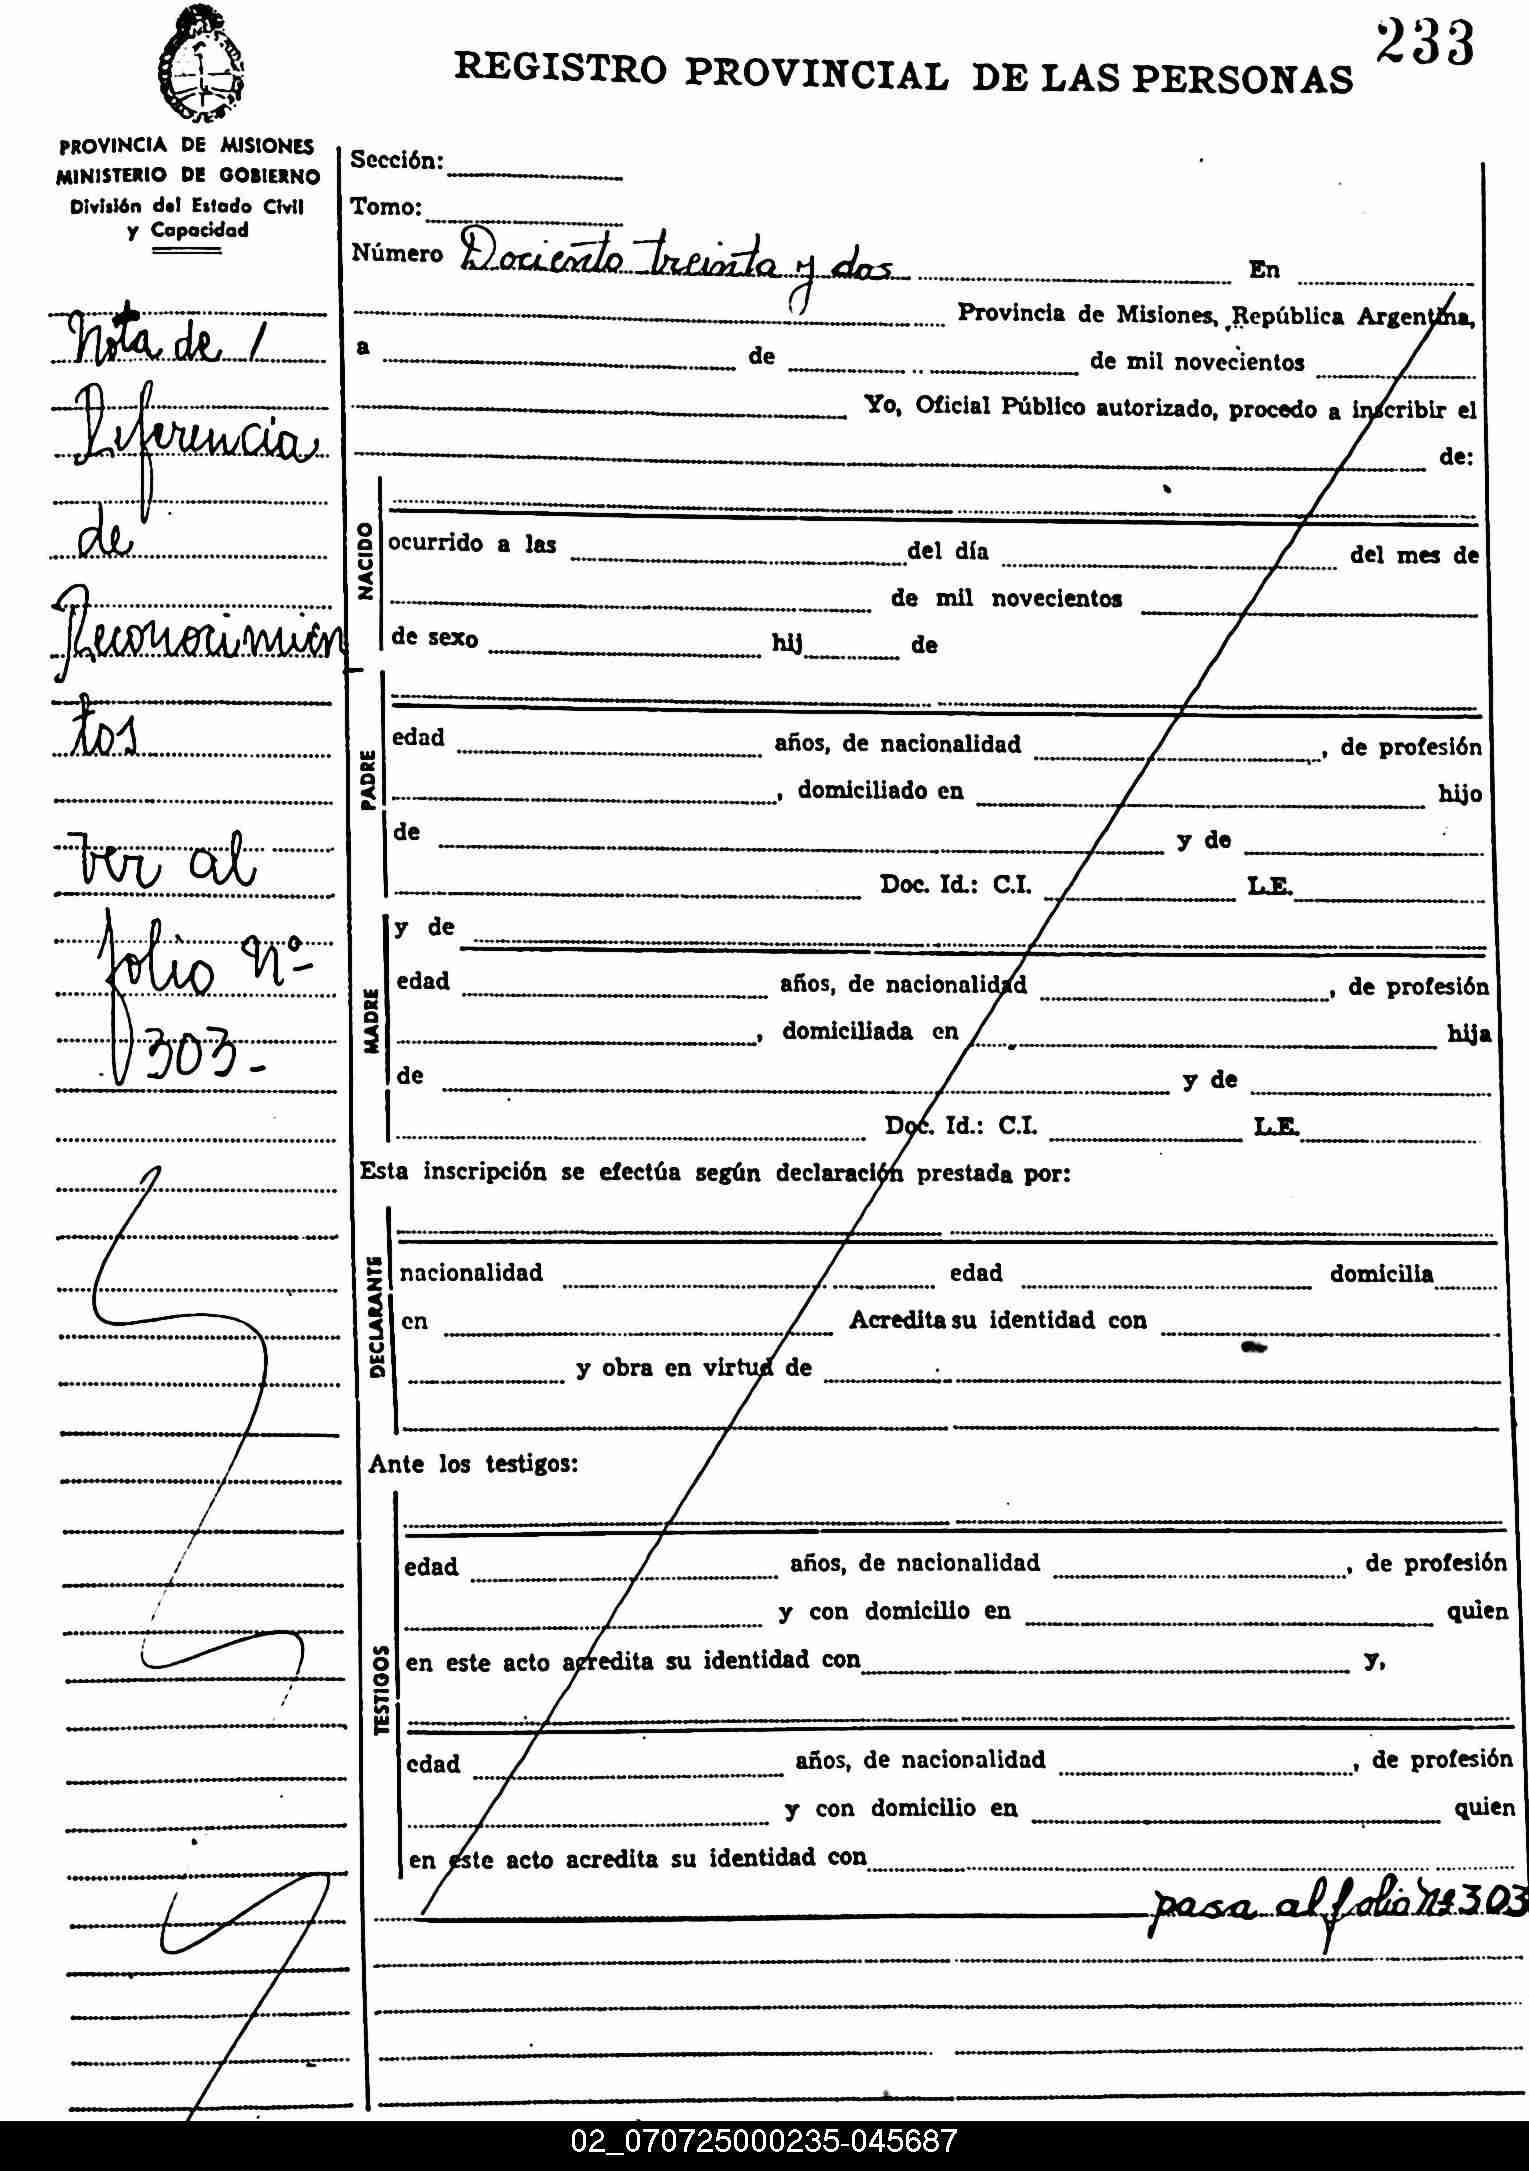 233
REGISTRO PROVINCIAL DE LAS PERSONAS
PROVINCIA DE MISIONES
MINISTERIO DE GOBIERNO
División del Estado Civil
y Capacidad
Nota de
Referencia
de
Reconocimien
tos
Ver al
folio Nº
303-
Sección:
Tomo:
Número Dociento treinta y dos En
Provincia de Misiones, República Argentina,
a de de mil novecientos
Yo, Oficial Público autorizado, procedo a inscribir el
de:
NACIDO
ocurrido a las del día del mes de
de mil novecientos
de sexo hij de
PADRE
edad años, de nacionalidad , de profesión
, domiciliado en hijo
de y de
Doc. Id.: C.I. L.E.
MADRE
y de
edad años, de nacionalidad , de profesión
, domiciliada en hija
de y de
Doc. Id.: C.I. L.E.
Esta inscripción se efectúa según declaración prestada por:
DECLARANTE
nacionalidad edad domicilia
en Acredita su identidad con
y obra en virtud de
Ante los testigos:
TESTIGOS
edad años, de nacionalidad , de profesión
y con domicilio en quien
en este acto acredita su identidad con y,
edad años, de nacionalidad , de profesión
y con domicilio en quien
en este acto acredita su identidad con
pasa al folio Nº 303
02_070725000235-045687